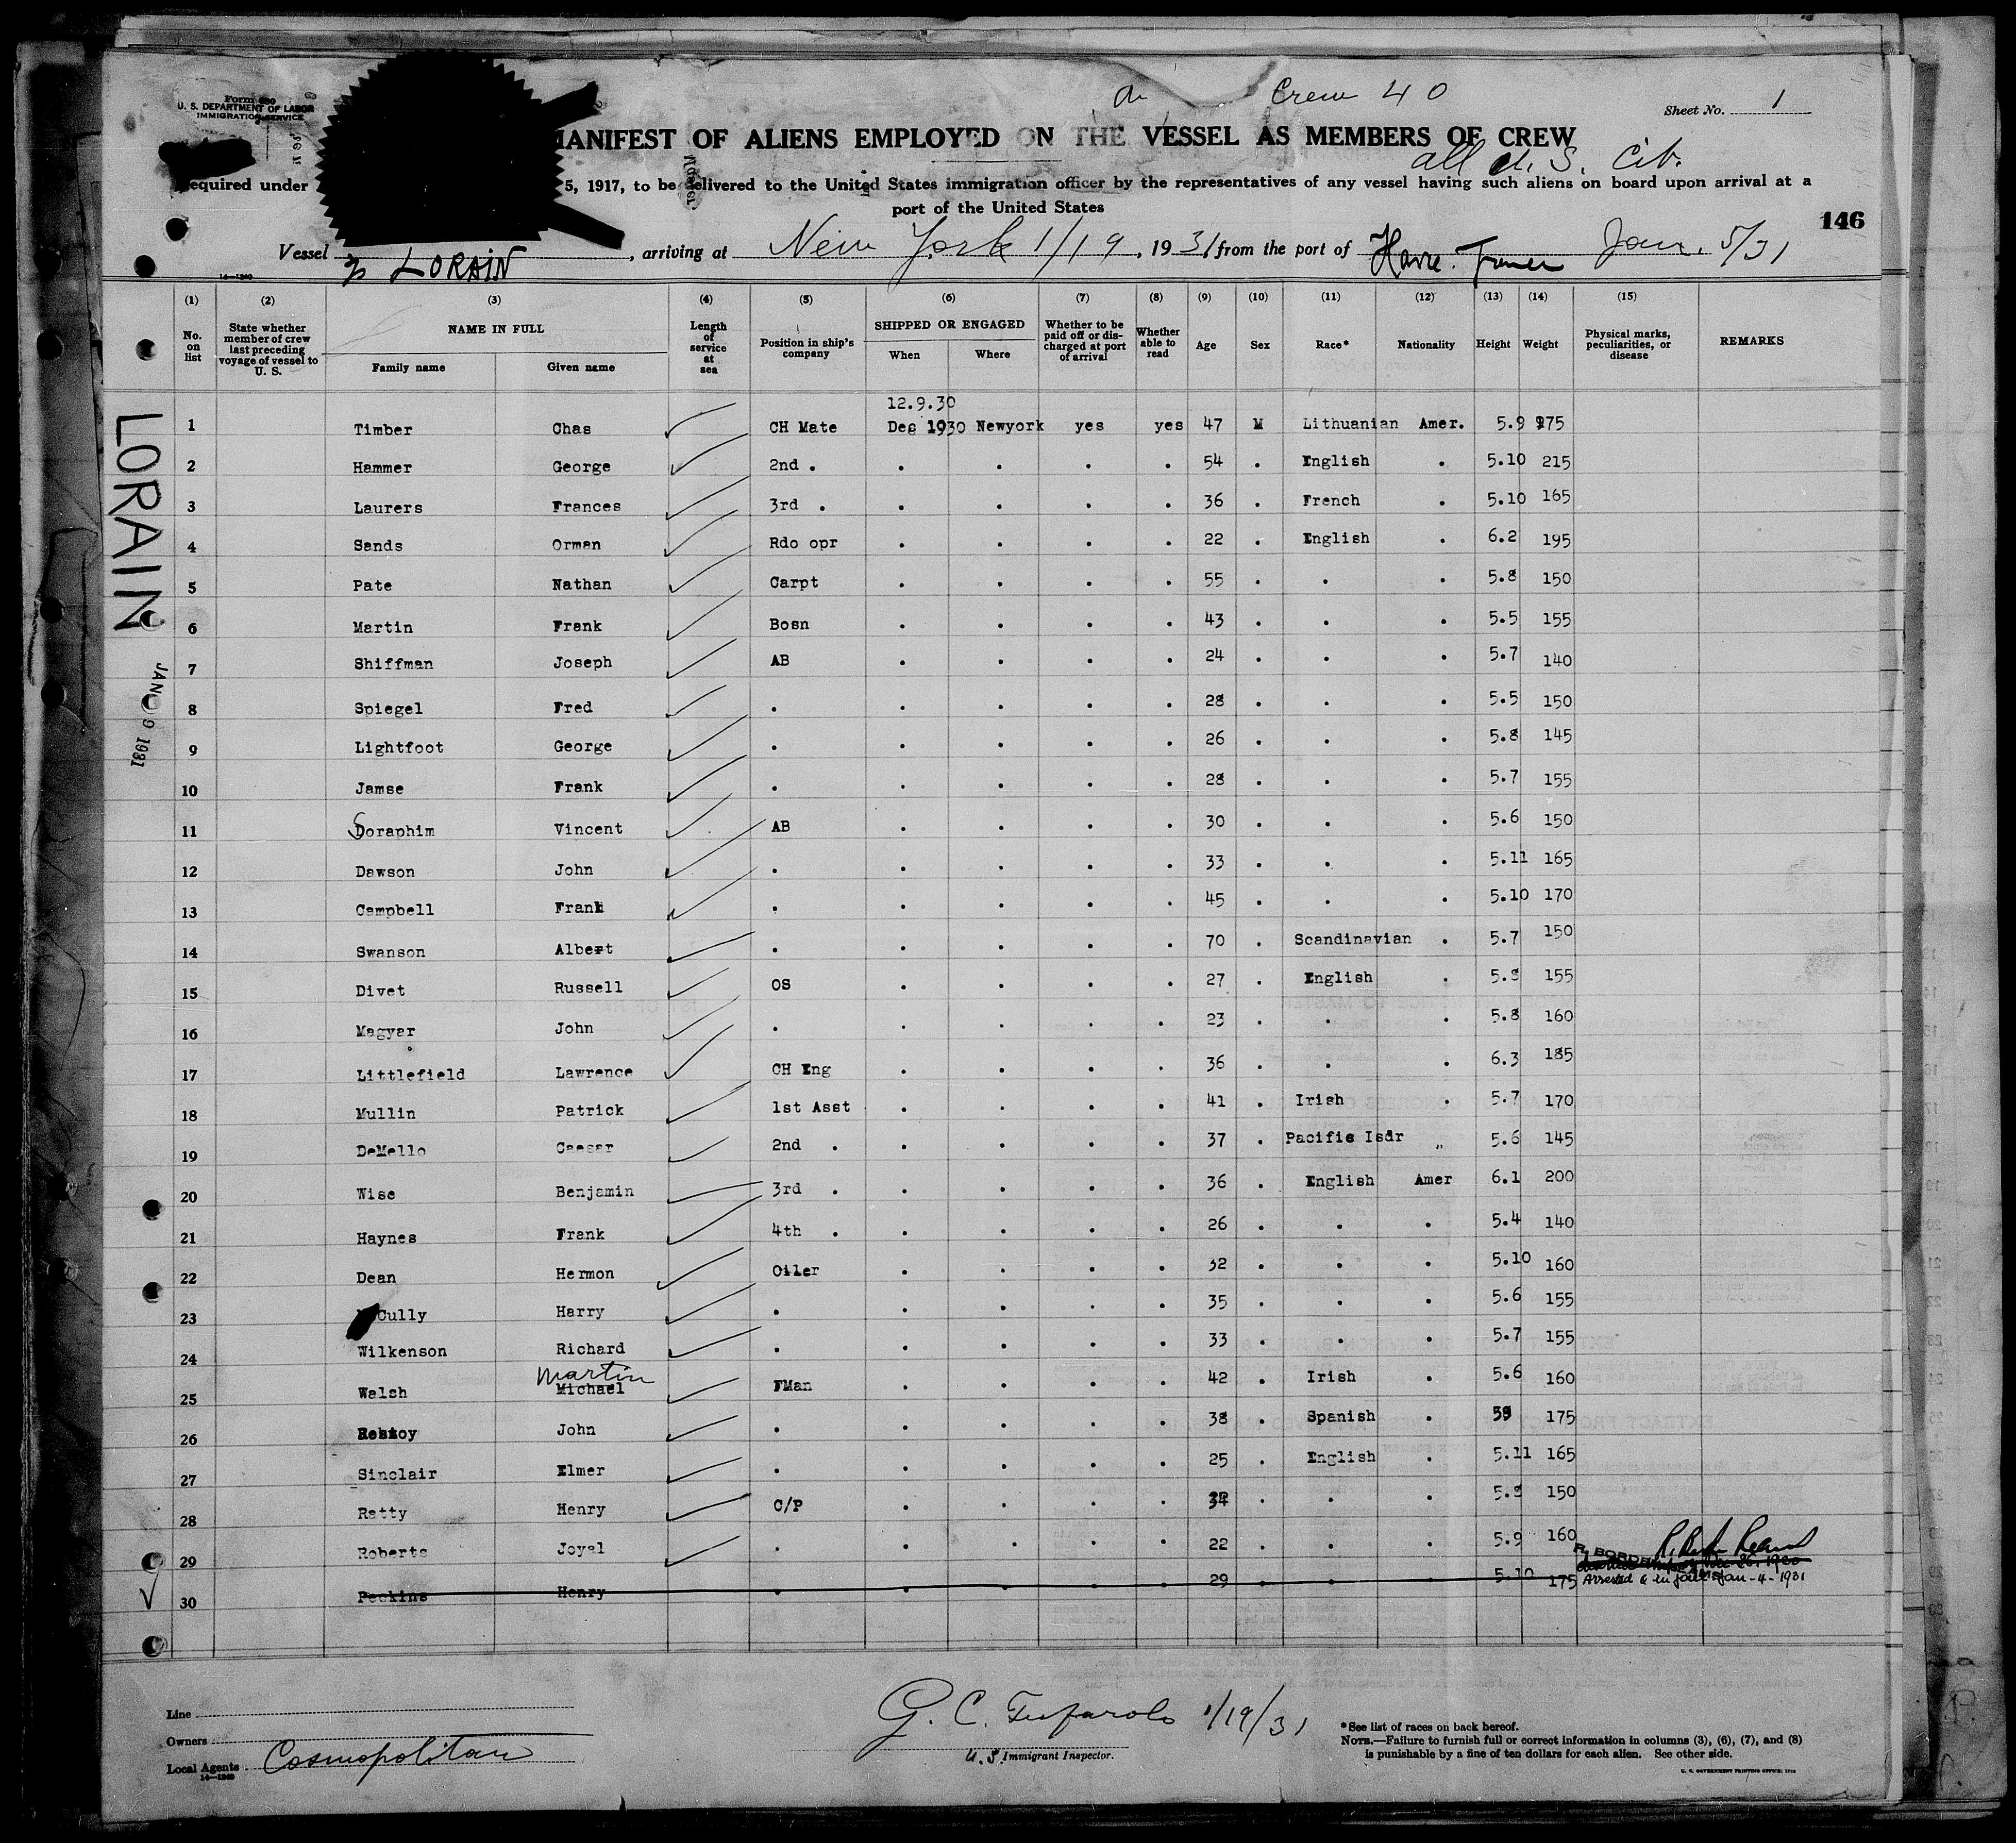 Form 680
U. S. DEPARTMENT OF LABOR
IMMIGRATION SERVICE
Crew 40
Sheet No. 1
MANIFEST OF ALIENS EMPLOYED ON THE VESSEL AS MEMBERS OF CREW
all U. S. Cit.
equired under 5, 1917, to be delivered to the United States immigration officer by the representatives of any vessel having such aliens on board upon arrival at a
port of the United States
146
Vessel LORAIN, arriving at New York 1/19, 1931 from the port of Havre. France Jan. 5/31
14—1240
(1) (2) (3) (4) (5) (6) (7) (8) (9) (10) (11) (12) (13) (14) (15)
No. on list State whether member of crew last preceding voyage of vessel to U. S. NAME IN FULL Length of service at sea Position in ship's company SHIPPED OR ENGAGED Whether to be paid off or discharged at port of arrival Whether able to read Age Sex Race* Nationality Height Weight Physical marks, peculiarities, or disease REMARKS
Family name Given name When Where
LORAIN
JAN 9 1931
12.9.30
1 Timber Chas CH Mate Dec 1930 Newyork yes yes 47 M Lithuanian Amer. 5.9 175
2 Hammer George 2nd . . . . . 54 . English . 5.10 215
3 Laurers Frances 3rd . . . . . 36 . French . 5.10 165
4 Sands Orman Rdo opr . . . . 22 . English . 6.2 195
5 Pate Nathan Carpt . . . . 55 . . . 5.8 150
6 Martin Frank Bosn . . . . 43 . . . 5.5 155
7 Shiffman Joseph AB . . . . 24 . . . 5.7 140
8 Spiegel Fred . . . . . 28 . . . 5.5 150
9 Lightfoot George . . . . . 26 . . . 5.8 145
10 Jamse Frank . . . . . 28 . . . 5.7 155
11 Soraphim Vincent AB . . . . 30 . . . 5.6 150
12 Dawson John . . . . . 33 . . . 5.11 165
13 Campbell Frank . . . . . 45 . . . 5.10 170
14 Swanson Albert . . . . . 70 . Scandinavian . 5.7 150
15 Divet Russell OS . . . . 27 . English . 155
16 Magyar John . . . . . 23 . . . 5.8 160
17 Littlefield Lawrence CH Eng . . . . 36 . . . 6.3 185
18 Mullin Patrick 1st Asst . . . . 41 . Irish . 5.7 170
19 DeMello Caesar 2nd . . . . . 37 . Pacific Isdr „ 5.6 145
20 Wise Benjamin 3rd . . . . . 36 . English Amer 6.1 200
21 Haynes Frank 4th . . . . . 26 . . . 5.4 140
22 Dean Hermon Oiler . . . . 32 . . . 5.10 160
23 Cully Harry . . . . . 35 . . . 5.6 155
24 Wilkenson Richard . . . . . 33 . . . 5.7 155
Martin
25 Walsh Michael FMan . . . . 42 . Irish . 5.6 160
26 John . . . . . 38 . Spanish . 175
27 Sinclair Elmer . . . . . 25 . English . 5.11 165
28 Ratty Henry C/P . . . . . . . 150
29 Roberts Joyal . . . . . 22 . . . 5.9 160
30 Peckins Henry . . . . . 29 . . . 5.10 175 Arrested & in jail Jan-4-1931
Line
Owners
Local Agents Cosmopolitan
14—1240
G. C. Tufarolo 1/19/31
U. S. Immigrant Inspector.
*See list of races on back hereof.
NOTE.—Failure to furnish full or correct information in columns (3), (6), (7), and (8)
is punishable by a fine of ten dollars for each alien. See other side.
U. S. GOVERNMENT PRINTING OFFICE